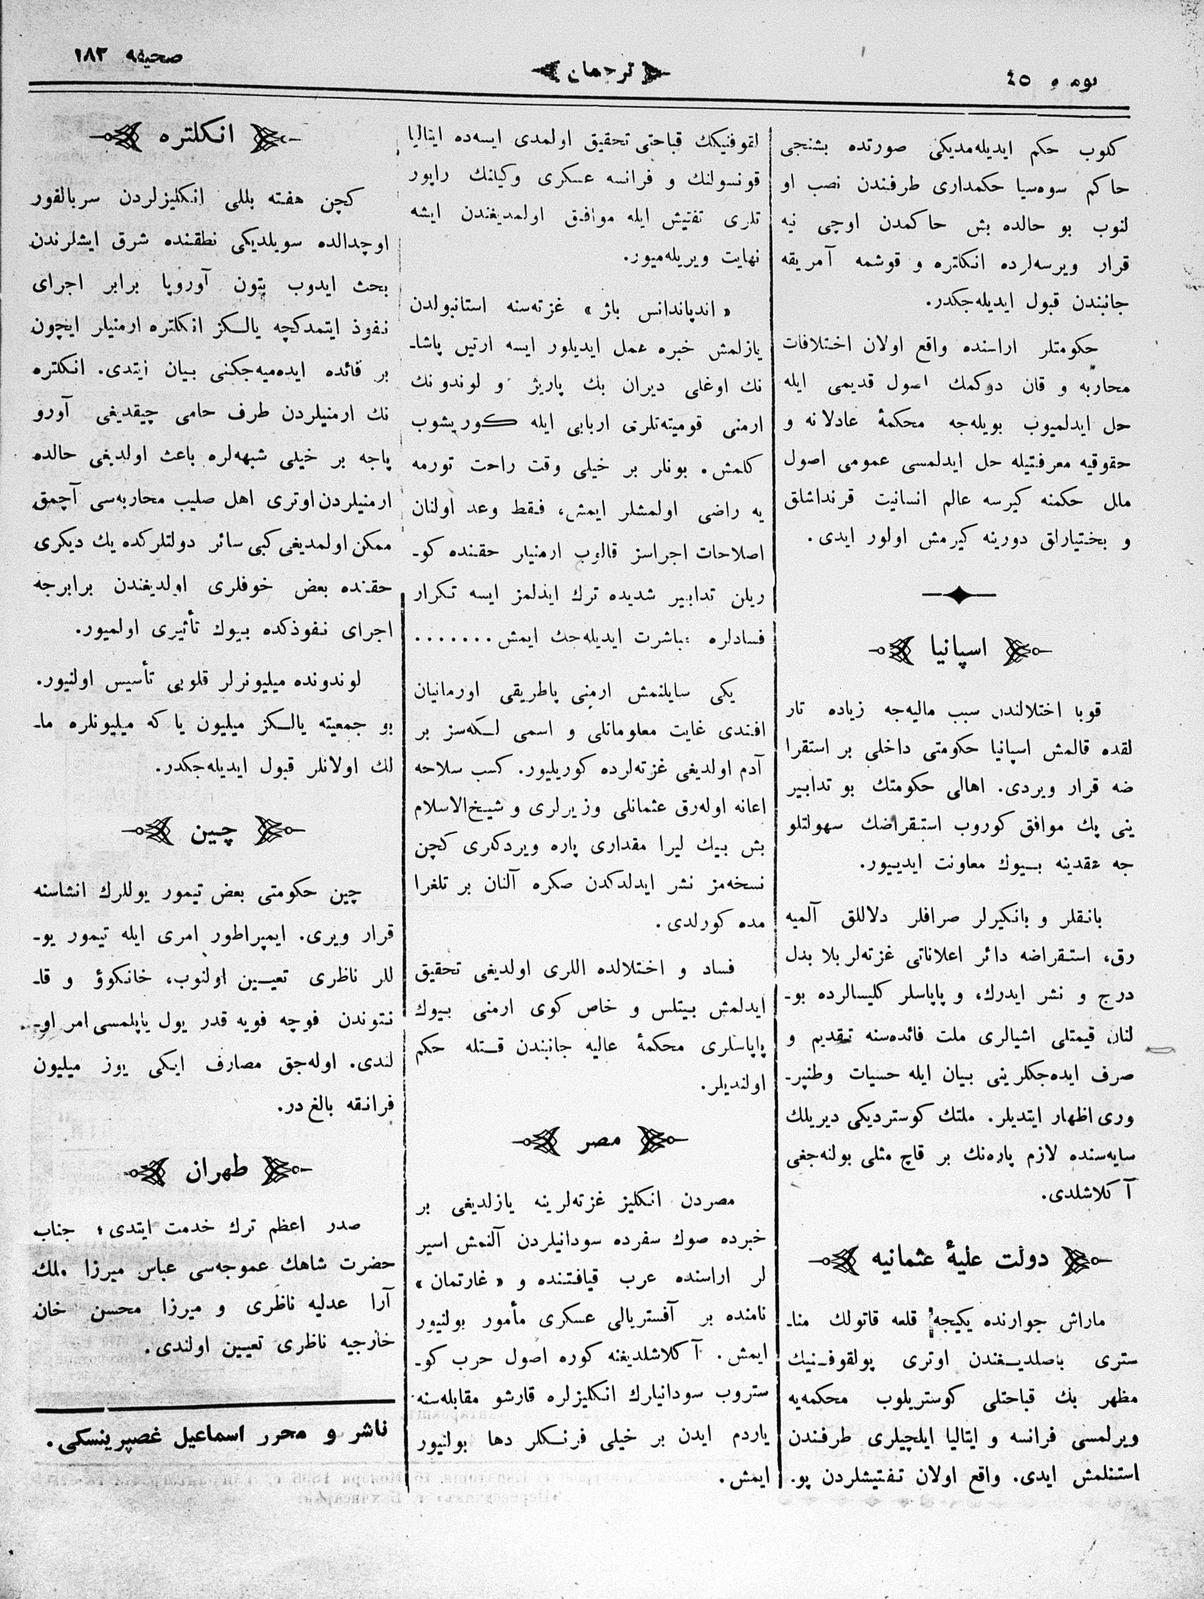 نومرو ٤٥
ترجمان
صحیفه ١٨٣
كلوب حكم ایدیله‌مدیكی صورتده بشنجی
حاكم سوه‌سیا حكمداری طرفندن نصب او
لنوب بو حالده بش حاكمدن اوچی نیه
قرار ویرسه‌لرده انكلتره و قوشمه آمریقه
جانبندن قبول ایدیله‌جكدر.
حكومتلر اراسنده واقع اولان اختلافات
محاربه و قان دوكمك اصول قدیمی ایله
حل ایدلمیوب بویله‌جه محكمهٔ عادلانه و
حقوقیه معرفتیله حل ایدلمسی عمومی اصول
ملل حكمنه كیرسه عالم انسانیت قرنداشلق
و بختیاراق دورینه كیرمش اولور ایدی.
اسپانیا
قوبا اختلالندن سبب مالیه‌جه زیاده تار
لقده قالمش اسپانیا حكومتی داخلی بر استقرا
ضه قرار ویردی. اهالی حكومتك بو تدابیر
ینی پك موافق كوروب استقراضك سهولتلو
جه عقدینه بیوك معاونت ایدییور.
بانقلر و بانكیرلر صرافلر دلاللق آلمیه
رق، استقراضه دائر اعلاناتی غزته‌لر بلا بدل
درج و نشر ایدرك، و پاپاسلر كلیسالرده بو-
لنان قیمتلی اشیالری ملت فائده‌سنه تقدیم و
صرف ایده‌جكلرینی بیان ایله حسیات وطنپر-
وری اظهار ایتدیلر. ملتك كوستردیكی دیریلك
سایه‌سنده لازم پاره‌نك بر قاچ مثلی بولنه‌جغی
آكلاشلدی.
دولت علیهٔ عثمانیه
ماراش جوارنده یكیجه قلعه قاتولك منا-
ستری باصلدیغندن اوتری پولقوفنیك
مظهر بك قباحتلی كوستریلوب محكمه‌یه
ویرلمسی فرانسه و ایتالیا ایلچیلری طرفندن
استنلمش ایدی. واقع اولان تفتیشلردن پو.
لقوفنیكك قباحتی تحقیق اولمدی ایسه‌ده ایتالیا
قونسولنك و فرانسه عسكری وكیلنك راپور
تلری تفتیش ایله موافق اولمدیغندن ایشه
نهایت ویریله‌میور.
« اندپاندانس بلژ » غزته‌سنه استانبولدن
یازلمش خبره عمل ایدیلور ایسه ارتین پاشا-
نك اوغلی دیران بك پاریژ و لوندونك
ارمنی قومیته‌تلری اربابی ایله كوریشوب
كلمش. بونلر بر خیلی وقت راحت تورمه
یه راضی اولمشلر ایمش، فقط وعد اولنان
اصلاحات اجراسز قالوب ارمنیلر حقنده كو-
ریلن تدابیر شدیده ترك ایدلمز ایسه تكرار
فسادلره مباشرت ایدیله‌جك ایمش.......
یكی سایلنمش ارمنی پاطریقی اورمانیان
افندی غایت معلوماتلی و اسمی لكه‌سز بر
آدم اولدیغی غزته‌لرده كوریلیور. كسب سلاحه
اعانه اوله‌رق عثمانلی وزیرلری و شیخ‌الاسلام
بش بیك لیرا مقداری پاره ویردكلری كچن
نسخه‌مز نشر ایدلدكدن صكره آلنان بر تلغرا
مده كورلدی.
فساد و اختلالده اللری اولدیغی تحقیق
ایدلمش بیتلس و خاص كوی ارمنی بیوك
پاپاسلری محكمهٔ عالیه جانبندن قتله حكم
اولندیلر.
مصر
مصردن انكلیز غزته‌لرینه یازلدیغی بر
خبرده صوك سفرده سودانیلردن آلنمش اسیر
لر اراسنده عرب قیافتنده و « غارتمان »
نامنده بر آفستریالی عسكری مأمور بولنیور
ایمش. آكلاشلدیغنه كوره اصول حرب كو-
ستروب سودانیلرك انكلیزلره قارشو مقابله‌سنه
یاردم ایدن بر خیلی فرنكلر دها بولنیور
ایمش.
انكلتره
كچن هفته بللی انكلیزلردن سربالفور
اوچدالده سویلدیكی نطقنده شرق ایشلرندن
بحث ایدوب بتون آوروپا برابر اجرای
نفوذ ایتمدكچه یالكز انكلتره ارمنیلر ایچون
بر فائده ایده‌میه‌جكنی بیان ایتدی. انكلتره
نك ارمنیلردن طرف حامی چیقدیغی آورو
پاجه بر خیلی شبهه‌لره باعث اولدیغی حالده
ارمنیلردن اوتری اهل صلیب محاربه‌سی آچمق
ممكن اولمدیغی كبی سائر دولتلركده یك دیكری
حقنده بعض خوفلری اولدیغندن برابرجه
اجرای نفوذكده بیوك تأثیری اولمیور.
لوندونده میلیونرلر قلوبی تأسیس اولنیور.
بو جمعیته یالكز میلیون یا كه میلیونلره ما-
لك اولانلر قبول ایدیله‌جكدر.
چین
چین حكومتی بعض تیمور یوللرك انشاسنه
قرار ویری. ایمپراطور امری ایله تیمور یو-
للر ناظری تعیین اولنوب، خانكوؤ و قا-
نتوندن فوچه فویه قدر یول یاپلمسی امر او-
لندی. اوله‌جق مصارف ایكی یوز میلیون
فرانقه بالغ در.
طهران
صدر اعظم ترك خدمت ایتدی؛ جناب
حضرت شاهك عموجه‌سی عباس میرزا ملك
آرا عدلیه ناظری و میرزا محسن خان
خارجیه ناظری تعیین اولندی.
ناشر و محرر اسماعیل غصپرینسكی.